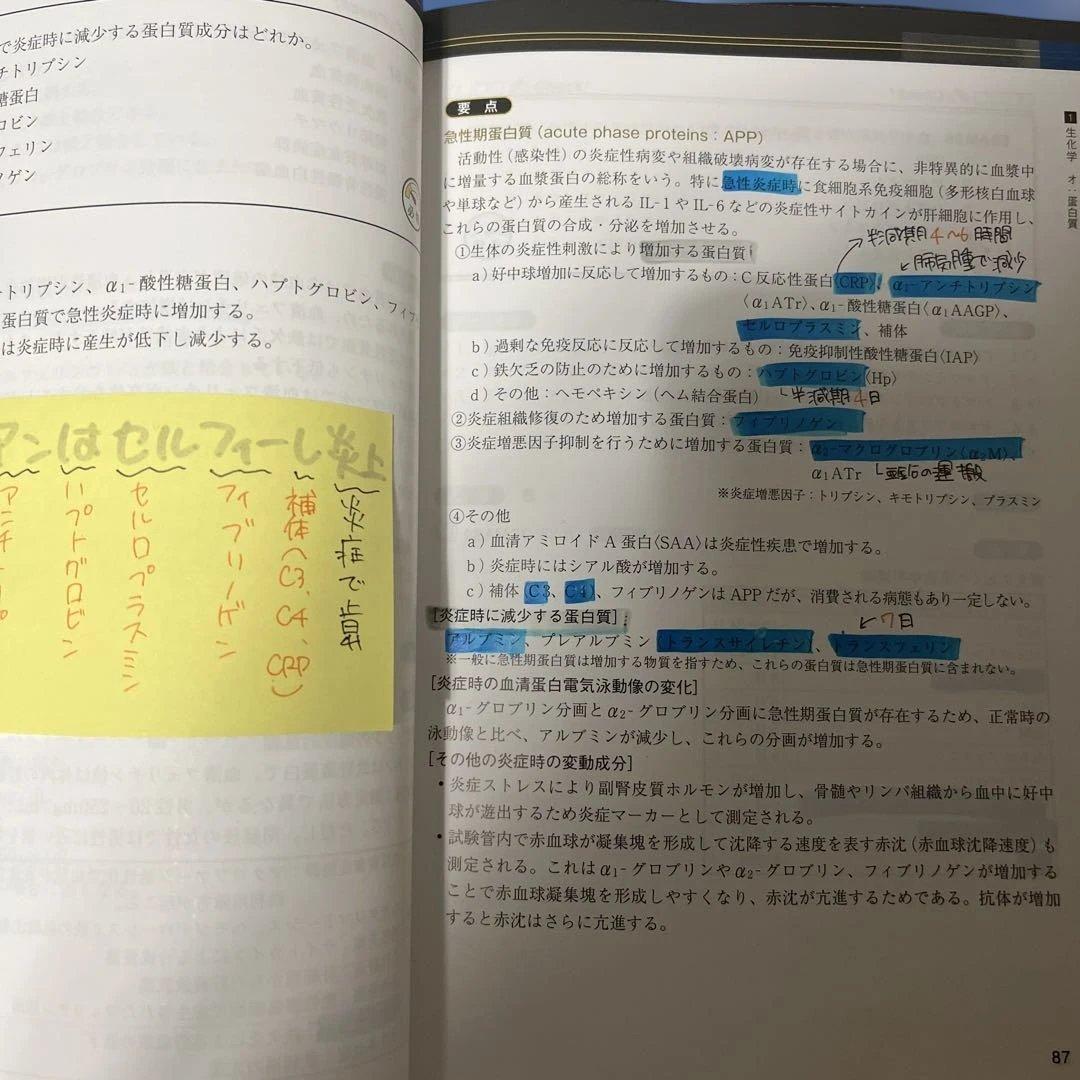 で炎症時に減少する蛋白質成分はどれか。
チトリプシン
糖蛋白
ロビン
フェリン
ノゲン
トリプシン、α₁-酸性糖蛋白、ハプトグロビン、フィブ
蛋白質で急性炎症時に増加する。
は炎症時に産生が低下し減少する。
アンはセルフィーし炎上
ハプトグロビン
セルロプラスミン
フィブリノゲン
補体(C3、C4、CRP)
炎症で上昇
要点
急性期蛋白質(acute phase proteins:APP)
活動性(感染性)の炎症性病変や組織破壊病変が存在する場合に、非特異的に血漿中
に増量する血漿蛋白の総称をいう。特に急性炎症時に食細胞系免疫細胞(多形核白血球
や単球など)から産生されるIL-1やIL-6などの炎症性サイトカインが肝細胞に作用し、
これらの蛋白質の合成・分泌を増加させる。
半減期4〜6時間
①生体の炎症性刺激により増加する蛋白質
肺気腫で減少
a)好中球増加に反応して増加するもの:C反応性蛋白〈CRP〉、α₁-アンチトリプシン
〈α₁ATr〉、α₁-酸性糖蛋白〈α₁AAGP〉、
セルロプラスミン、補体
b)過剰な免疫反応に反応して増加するもの:免疫抑制性酸性糖蛋白〈IAP〉
c)鉄欠乏の防止のために増加するもの:ハプトグロビン〈Hp〉
d)その他:ヘモペキシン(ヘム結合蛋白)
半減期4日
②炎症組織修復のため増加する蛋白質:フィブリノゲン
③炎症増悪因子抑制を行うために増加する蛋白質:α₂-マクログロブリン〈α₂M〉、
α₁ATr
の運搬
※炎症増悪因子:トリプシン、キモトリプシン、プラスミン
④その他
a)血清アミロイドA蛋白〈SAA〉は炎症性疾患で増加する。
b)炎症時にはシアル酸が増加する。
c)補体(C3、C4)、フィブリノゲンはAPPだが、消費される病態もあり一定しない。
[炎症時に減少する蛋白質]:
7日
アルブミン、プレアルブミン(トランスサイレチン)、トランスフェリン
※一般に急性期蛋白質は増加する物質を指すため、これらの蛋白質は急性期蛋白質に含まれない。
[炎症時の血清蛋白電気泳動像の変化]
α₁-グロブリン分画とα₂-グロブリン分画に急性期蛋白質が存在するため、正常時の
泳動像と比べ、アルブミンが減少し、これらの分画が増加する。
[その他の炎症時の変動成分]
・炎症ストレスにより副腎皮質ホルモンが増加し、骨髄やリンパ組織から血中に好中
球が遊出するため炎症マーカーとして測定される。
・試験管内で赤血球が凝集塊を形成して沈降する速度を表す赤沈(赤血球沈降速度)も
測定される。これはα₁-グロブリンやα₂-グロブリン、フィブリノゲンが増加する
ことで赤血球凝集塊を形成しやすくなり、赤沈が亢進するためである。抗体が増加
すると赤沈はさらに亢進する。
1 生化学 オ:蛋白質
87